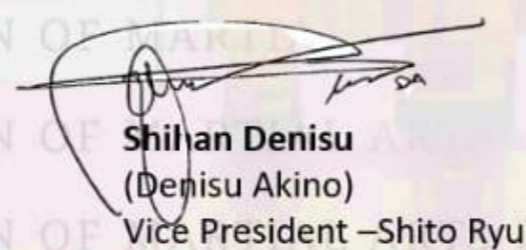 DA
Shihan Denisu
(Denisu Akino)
Vice President –Shito Ryu